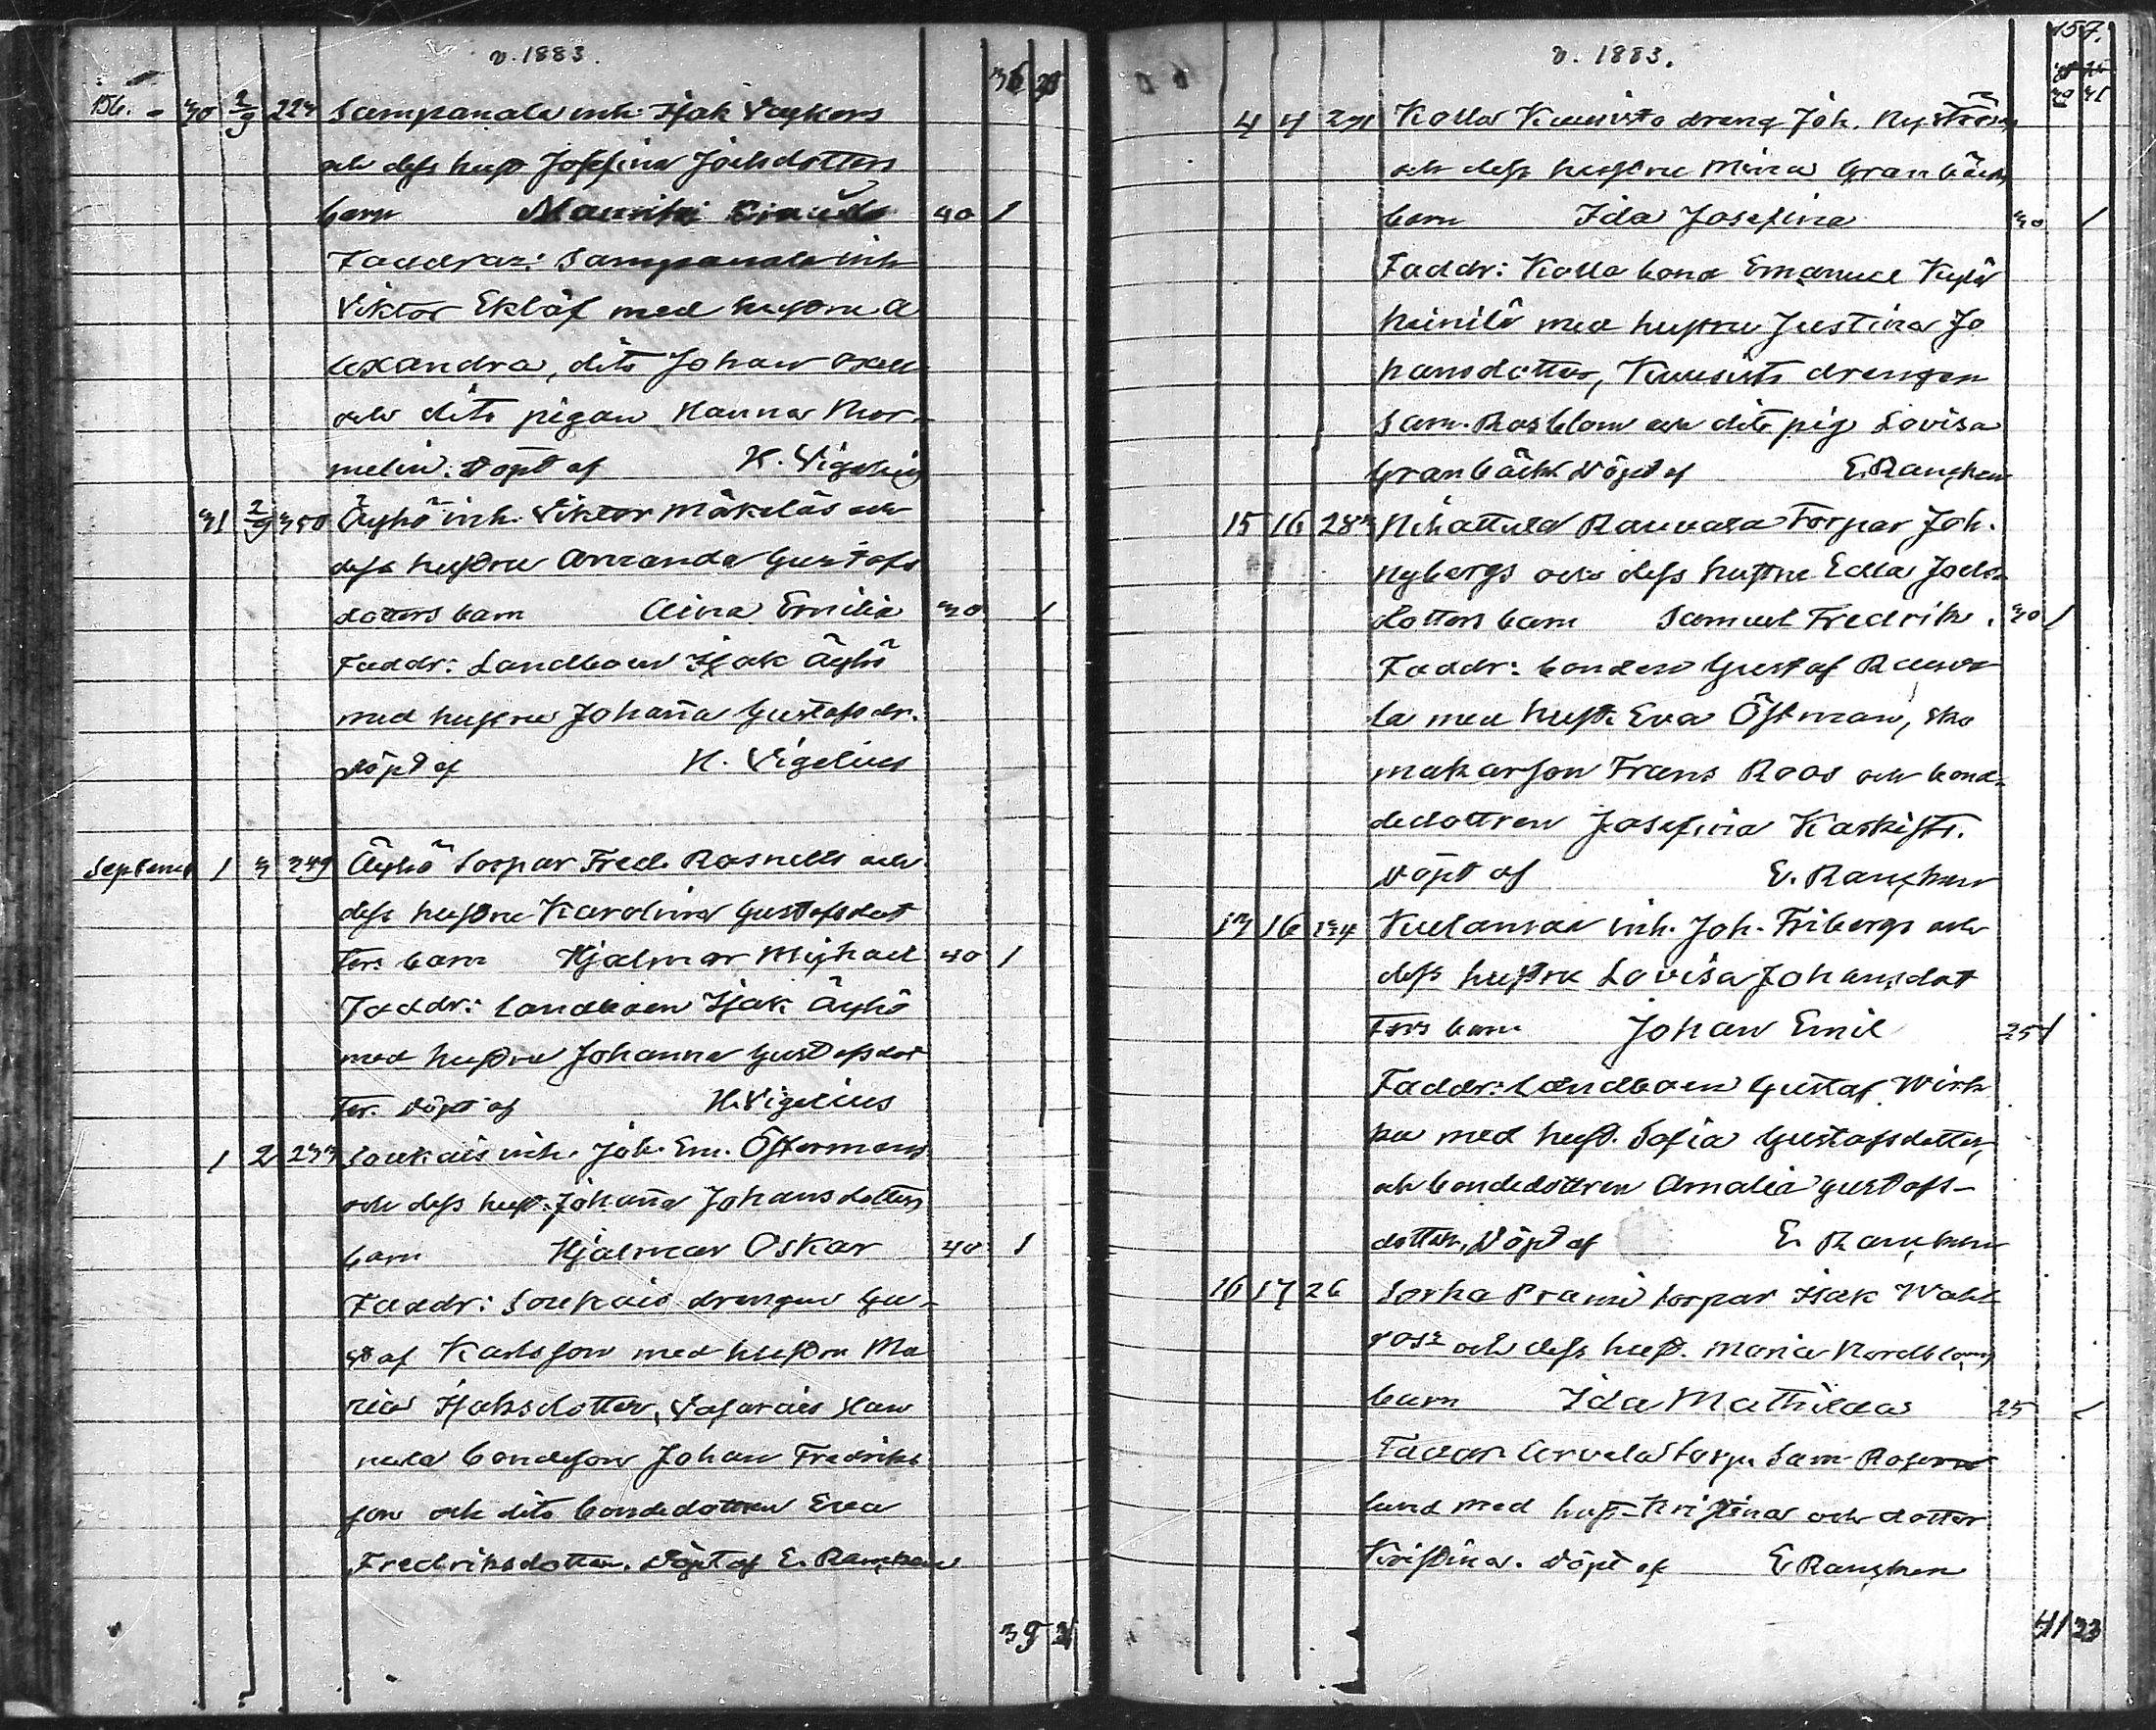 v. 1883.
36 28
156. - 30 2/9 223 Sampanala inh. Isak Vaykors
och dess hust Josefina Jacksdotters
barn Mauritz 40 1
Faddrar: Sampanala inh
Viktor Eklöf med hustru A
lexandra, dito Johan Oxell
och dito pigan Hanna Nor-
melin. döpt af H. Vigelius
31 2/9 350 Äyhö inh. Viktor Mäkeläs och
dess hustru Amanda Gustafs
dotters barn Aina Emilia 30 1
Faddr: Landboen Isak Äyhö
med hustru Johanna Gustafsdr.
döpt af H. Vigelius
September 1 3 349 Äyhö torpar Fred. Rosnells och
dess hustru Karolina Gustafsdot
ters barn Hjalmar Mickael 40 1
Faddr: Landboen Isak Äyhö
med hustru Johanna Gustafsdot
ter. döpt af H. Vigelius
1 2 233 Soukais inh. Joh. Em. Östermans
och dess hust. Johanna Johansdotters
barn Hjalmar Oskar 40 1
Faddr: Soukais drengen Gu-
staf Karlsson med hustru Ma
ria Isaksdotter, Han
nula bondeson Johan Fredriks
son och dito bondedottren Eva
Fredriksdotter. Döpt af E. Rancken
39 31
v. 1883.
157.
39 31
4 4 271 Kolla Kuusisto dreng Joh. Nyström
och dess hustru Mina Granbäcks
barn Ida Josefina 30 1
Faddr: Kolla bond Emanuel Kylä
heinilä med hustru Justina Jo
hansdotter, Kuusisto drengen
Sam. Rosblom och dito pig Lovisa
Granbäck Döpt af E. Rancken
15 16 283 Nihattula Rauvola Torpar Joh.
Nybergs och dess hustru Edla Jacks
dotters barn Samuel Fredrik. 30 1
Faddr: bonden Gustaf Rauvo
la med hust. Eva Östman, sko
makarson Frans Roos och bond-
dedottren Josefina Kaskisto.
Döpt af E. Rancken
13 16 134 Kulamaa inh. Joh. Fribergs och
dess hustru Lovisa Johansdot
ters barn Johan Emil 25 1
Faddr: Landboen Gustaf Wirk
ku med hust. Sofia Gustafsdotter,
och bondedottren Amalia Gustafs-
dotter, Döpt af E. Rancken
16 17 26 Sorka Prami torpar Isak Wahl
roos och dess hust. Maria Nordbloms
barn Ida Mathilda 25 1
Faddr. Arvela torp. Sam. Rosen
lund med hust. Kristina och dotter
Kristina. döpt af E Rancken
41 33